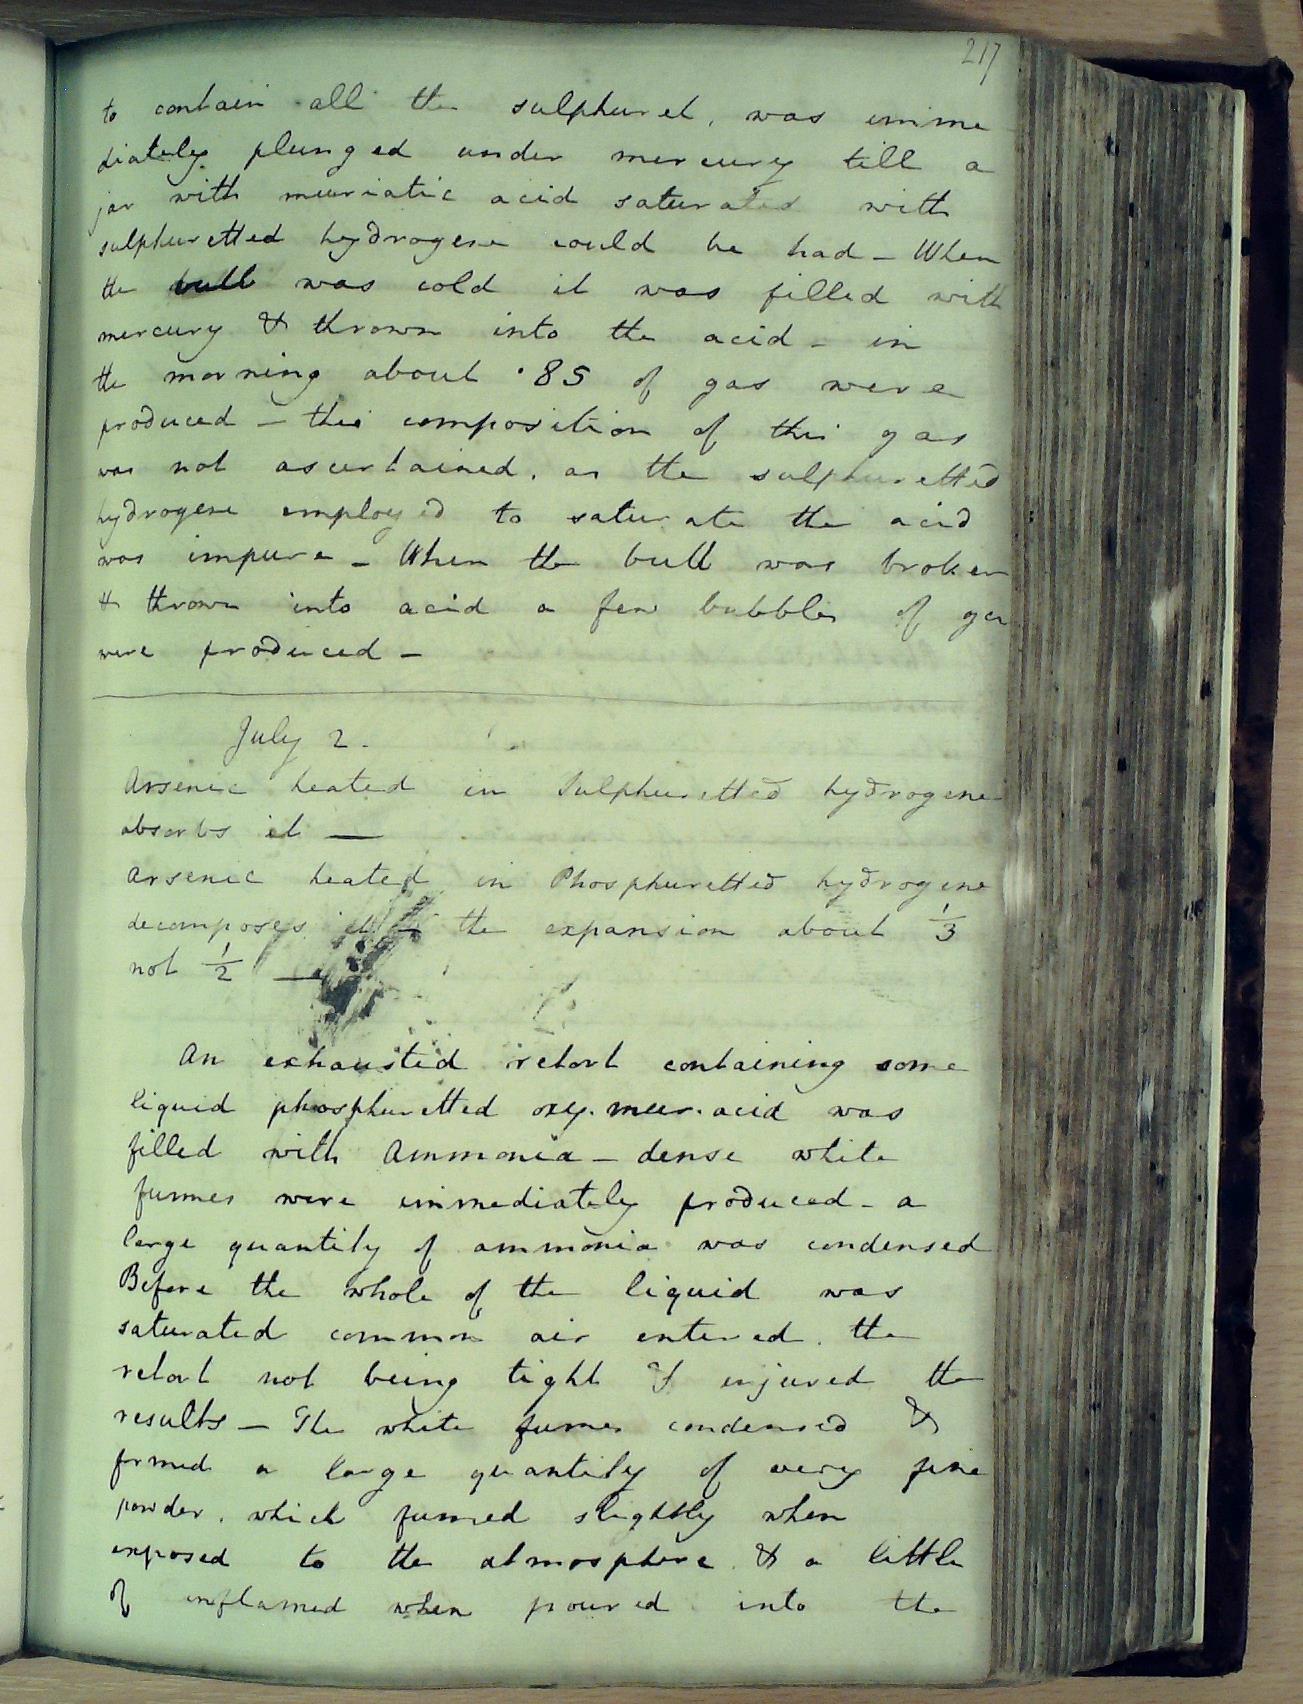 217
to contain all the sulphuret, was imme
diately plunged under mercury till a
jar with muriatic acid saturated with
sulphuretted hydrogene could be had - When
the bulb was cold it was filled with
mercury & thrown into the acid - in
the morning about .85 of gas were
produced - the composition of this gas
was not ascertained, as the sulphuretted
hydrogene employed to saturate the acid
was impure - When the bulb was broken
& thrown into acid a few bubbles of gas
were produced -
July 2.
Arsenic heated in Sulphuretted hydrogene
absorbs it —
Arsenic heated in Phosphuretted hydrogene
decomposes it - the expansion about 1/3
not 1/2 —
An exhausted retort containing some
liquid phosphuretted oxy. mur. acid was
filled with Ammonia - dense white
fumes were immediately produced - a
large quantity of ammonia was condensed
Before the whole of the liquid was
saturated common air entered, the
retort not being tight & injured the
results - The white fumes condensed &
formed a large quantity of very fine
powder, which fumed slightly when
exposed to the atmosphere & a little
of inflamed when poured into the